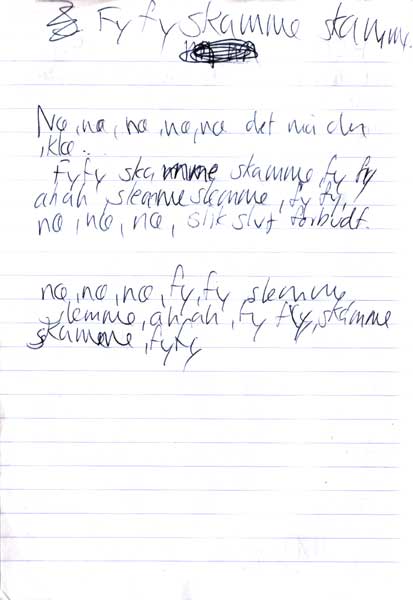 Fy fy skamme skamme.
Na, na, na, na, na det må du
ikke..
Fy fy skamme skamme, fy fy
ahah, slemme slemme, fy fy,
na, na, na, slik slut forbudt.
na, na, na, fy, fy slemme
slemme, ah, ah, fy fy, skamme
skamme, fy fy